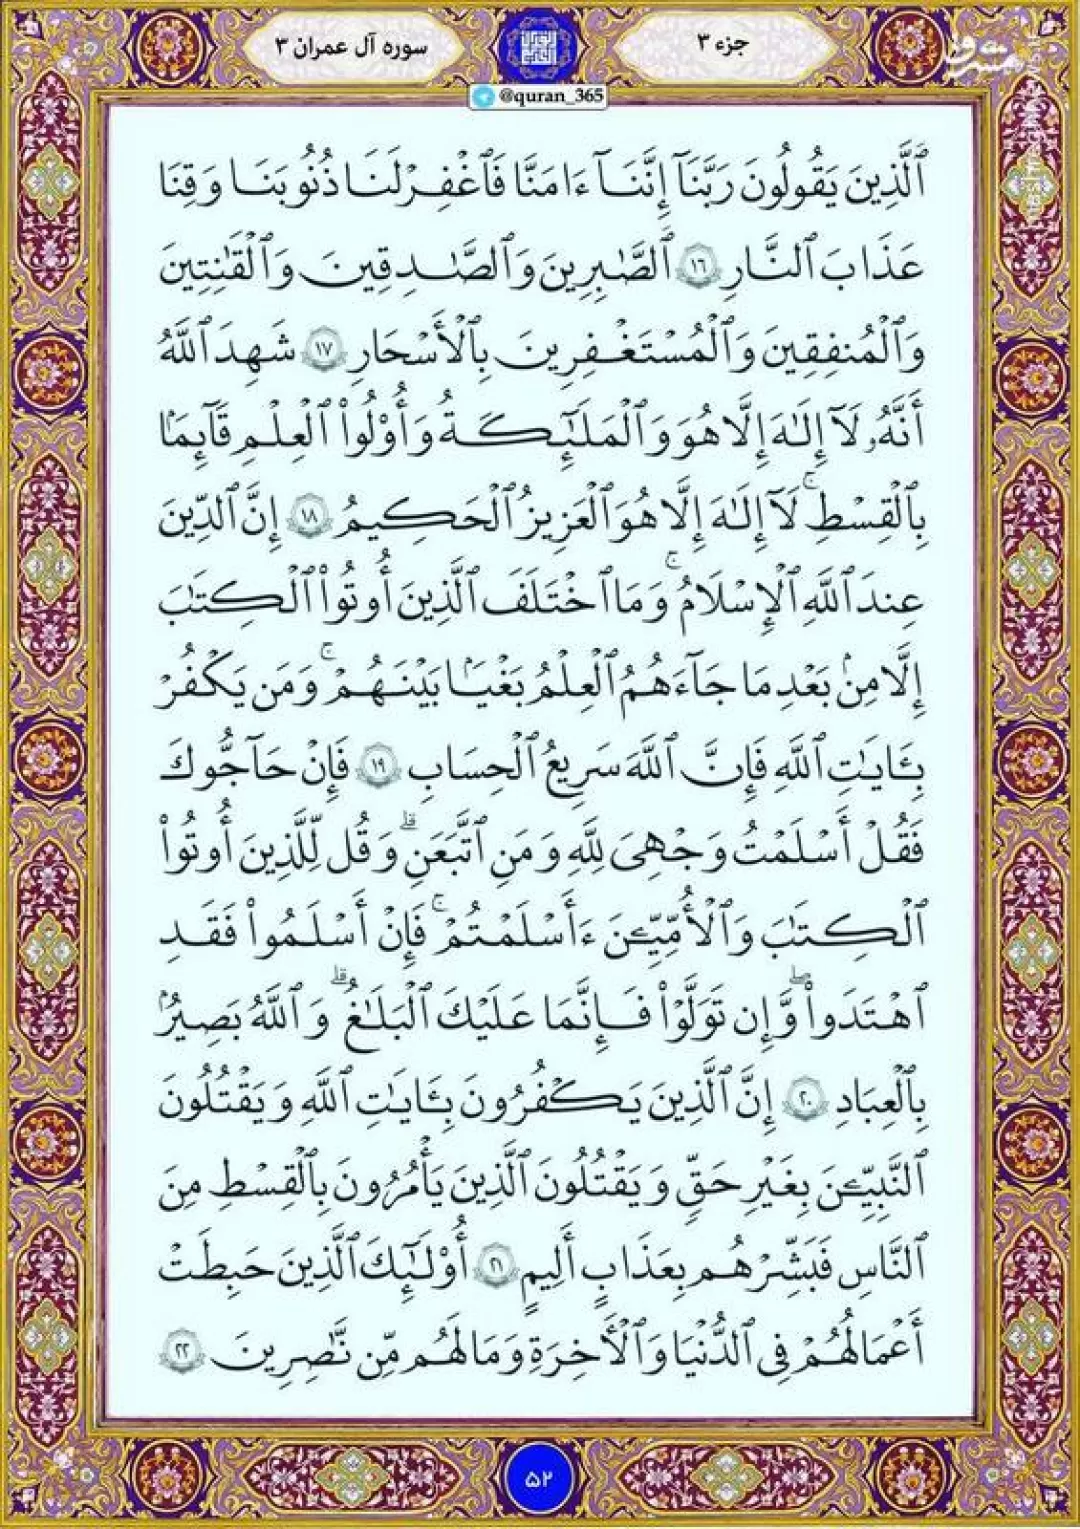 سوره آل عمران ۳
جزء ۳
@quran_365
مشرق
ٱلَّذِينَ يَقُولُونَ رَبَّنَآ إِنَّنَآ ءَامَنَّا فَٱغۡفِرۡ لَنَا ذُنُوبَنَا وَقِنَا
عَذَابَ ٱلنَّارِ ١٦ ٱلصَّٰبِرِينَ وَٱلصَّٰدِقِينَ وَٱلۡقَٰنِتِينَ
وَٱلۡمُنفِقِينَ وَٱلۡمُسۡتَغۡفِرِينَ بِٱلۡأَسۡحَارِ ١٧ شَهِدَ ٱللَّهُ
أَنَّهُۥ لَآ إِلَٰهَ إِلَّا هُوَ وَٱلۡمَلَٰٓئِكَةُ وَأُوْلُواْ ٱلۡعِلۡمِ قَآئِمَۢا
بِٱلۡقِسۡطِۚ لَآ إِلَٰهَ إِلَّا هُوَ ٱلۡعَزِيزُ ٱلۡحَكِيمُ ١٨ إِنَّ ٱلدِّينَ
عِندَ ٱللَّهِ ٱلۡإِسۡلَٰمُۗ وَمَا ٱخۡتَلَفَ ٱلَّذِينَ أُوتُواْ ٱلۡكِتَٰبَ
إِلَّا مِنۢ بَعۡدِ مَا جَآءَهُمُ ٱلۡعِلۡمُ بَغۡيَۢا بَيۡنَهُمۡۗ وَمَن يَكۡفُرۡ
بِـَٔايَٰتِ ٱللَّهِ فَإِنَّ ٱللَّهَ سَرِيعُ ٱلۡحِسَابِ ١٩ فَإِنۡ حَآجُّوكَ
فَقُلۡ أَسۡلَمۡتُ وَجۡهِيَ لِلَّهِ وَمَنِ ٱتَّبَعَنِۗ وَقُل لِّلَّذِينَ أُوتُواْ
ٱلۡكِتَٰبَ وَٱلۡأُمِّيِّـۧنَ ءَأَسۡلَمۡتُمۡۚ فَإِنۡ أَسۡلَمُواْ فَقَدِ
ٱهۡتَدَواْۖ وَّإِن تَوَلَّوۡاْ فَإِنَّمَا عَلَيۡكَ ٱلۡبَلَٰغُۗ وَٱللَّهُ بَصِيرُۢ
بِٱلۡعِبَادِ ٢٠ إِنَّ ٱلَّذِينَ يَكۡفُرُونَ بِـَٔايَٰتِ ٱللَّهِ وَيَقۡتُلُونَ
ٱلنَّبِيِّـۧنَ بِغَيۡرِ حَقّٖ وَيَقۡتُلُونَ ٱلَّذِينَ يَأۡمُرُونَ بِٱلۡقِسۡطِ مِنَ
ٱلنَّاسِ فَبَشِّرۡهُم بِعَذَابٍ أَلِيمٍ ٢١ أُوْلَٰٓئِكَ ٱلَّذِينَ حَبِطَتۡ
أَعۡمَٰلُهُمۡ فِي ٱلدُّنۡيَا وَٱلۡأٓخِرَةِ وَمَا لَهُم مِّن نَّٰصِرِينَ ٢٢
۵۲